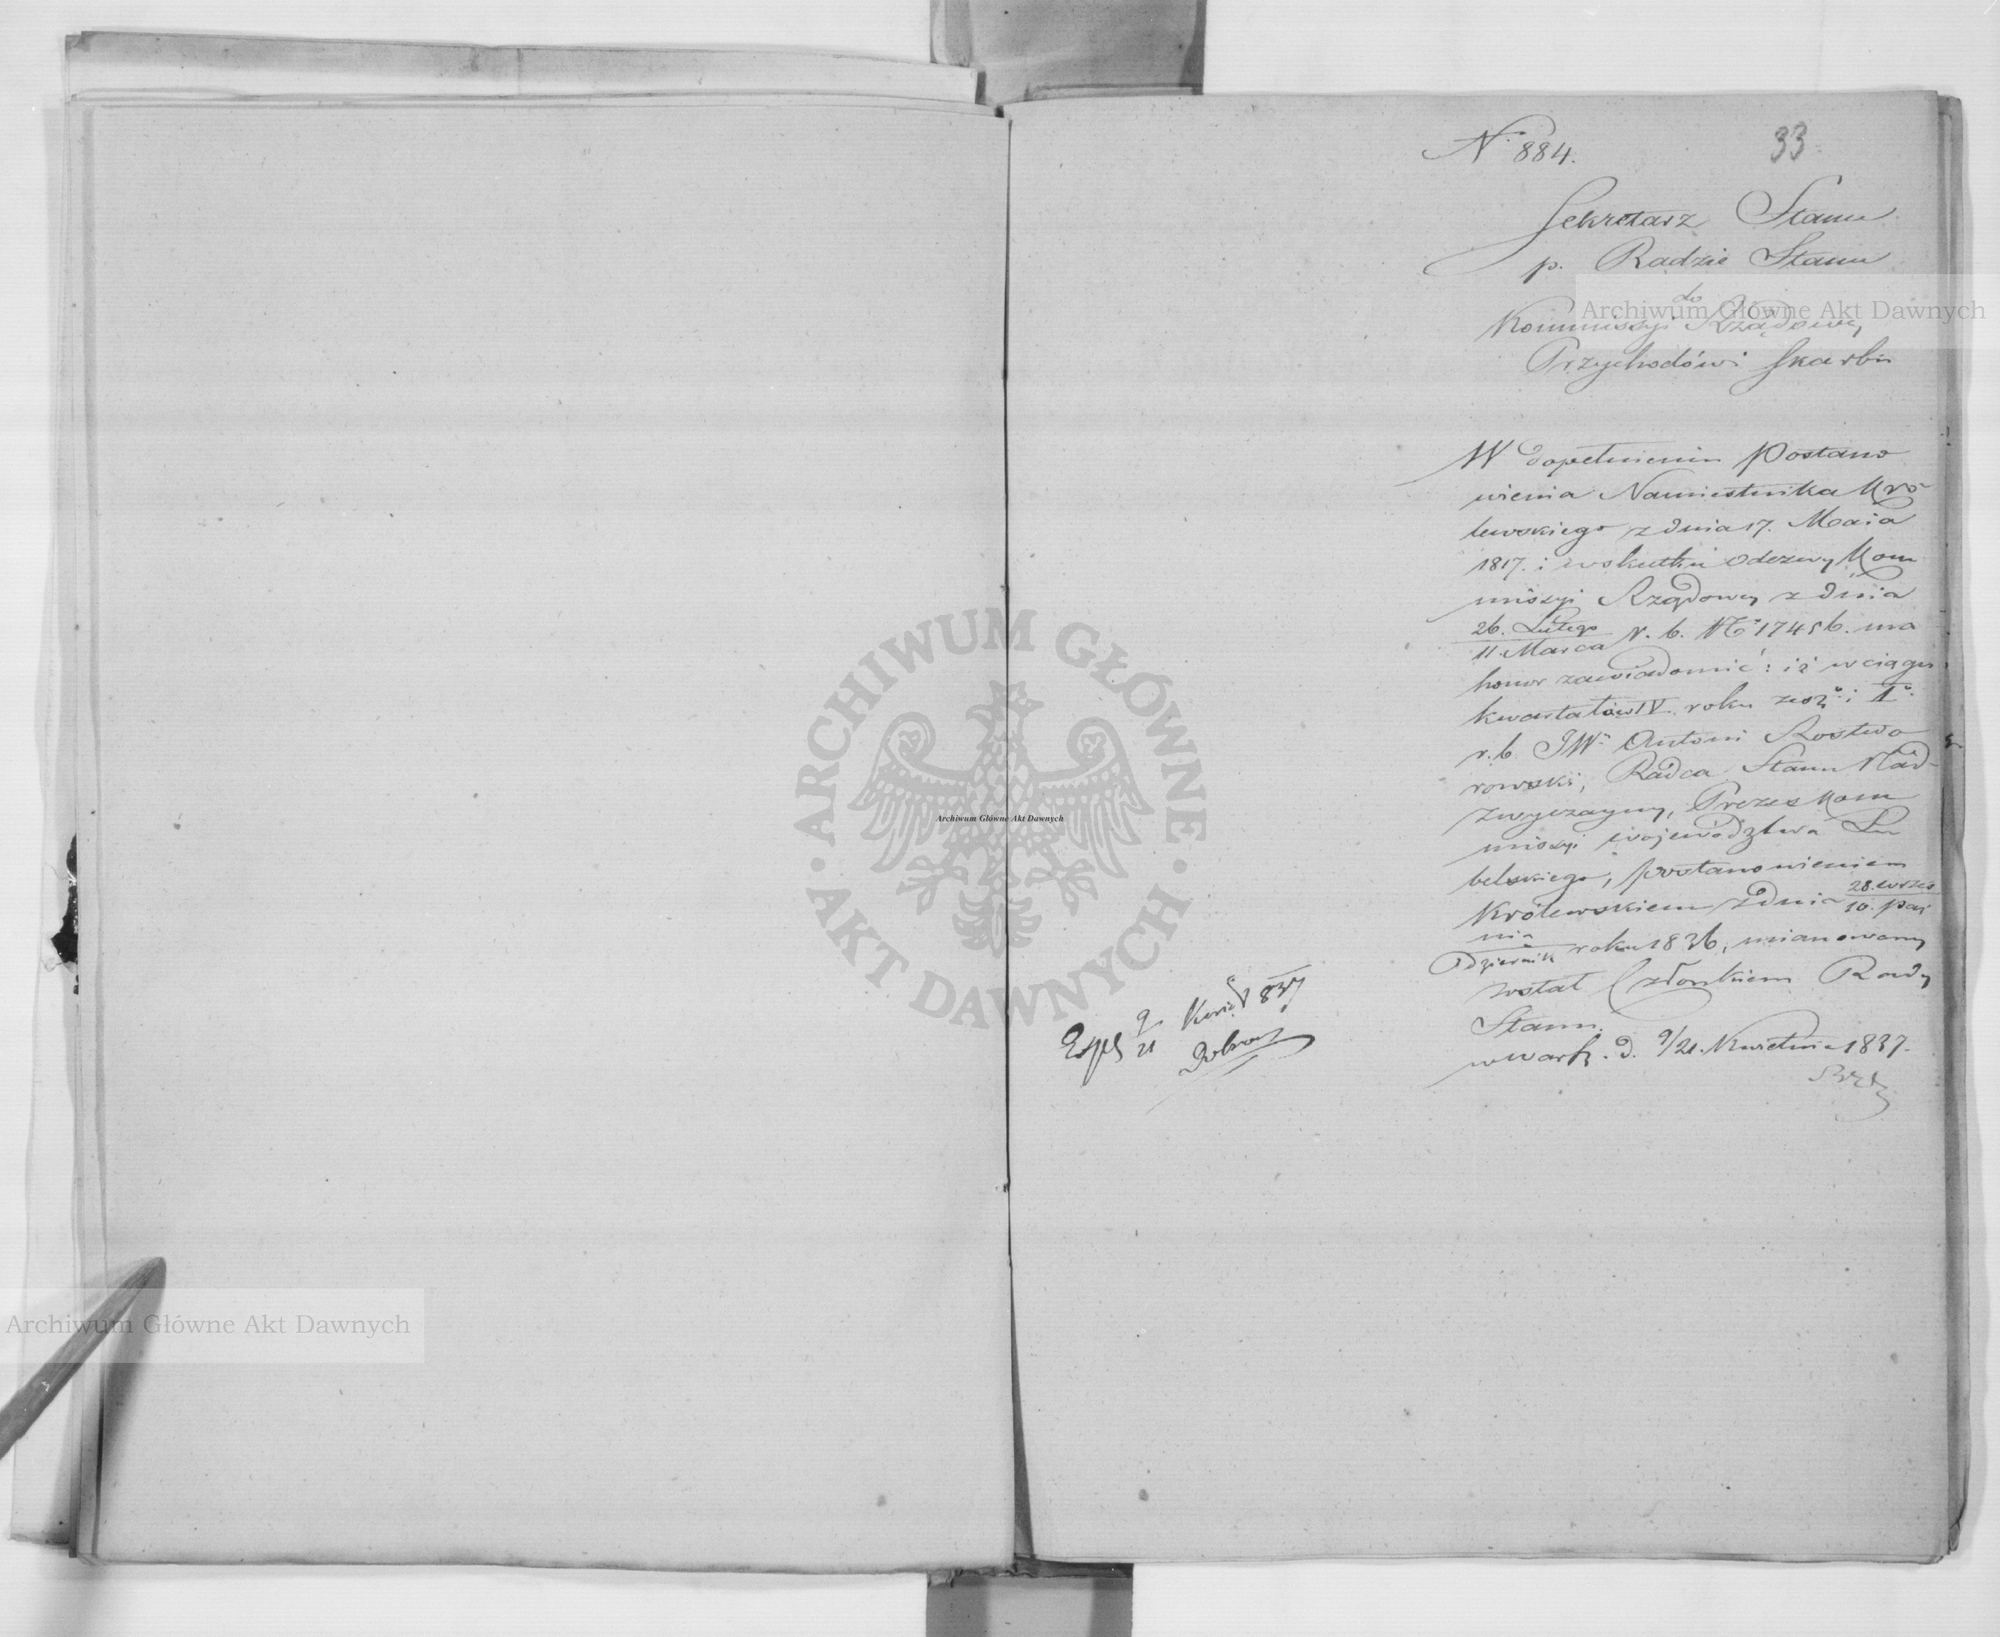 N° 884.
33
Sekretarz Stanu
p. Radzie Stanu
do
Kommissyi Rządowey
Przychodów i Skarbu
W dopełnieniu Postano
wienia Namiestnika Kró-
lewskiego z dnia 17. Maia
1817. i wskutku Odezwy Kom
missyi Rządowey z dnia
26. Lutego
11. Marca r. b. N° 17456. ma
honor zawiadomić: iż w ciągu
kwartałów IV. roku zeszł: i I°
r. b. JW: Antoni Rostwo
rowski, Radca Stanu Nad-
zwyczayny, Prezes Kom
missyi Województwa Lu
belskiego, postanowieniem
Królewskiem z dnia 28. wrześ
10. paź
nia
dziernik roku 1836, mianowany
został Członkiem Rady
Stanu.
w Warsz. d. 9/21. Kwietnia 1837.
Exped 9
21 Kwie 1837
Archiwum Główne Akt Dawnych
Archiwum Główne Akt Dawnych
Archiwum Główne Akt Dawnych
ARCHIWUM GŁÓWNE · AKT DAWNYCH ·